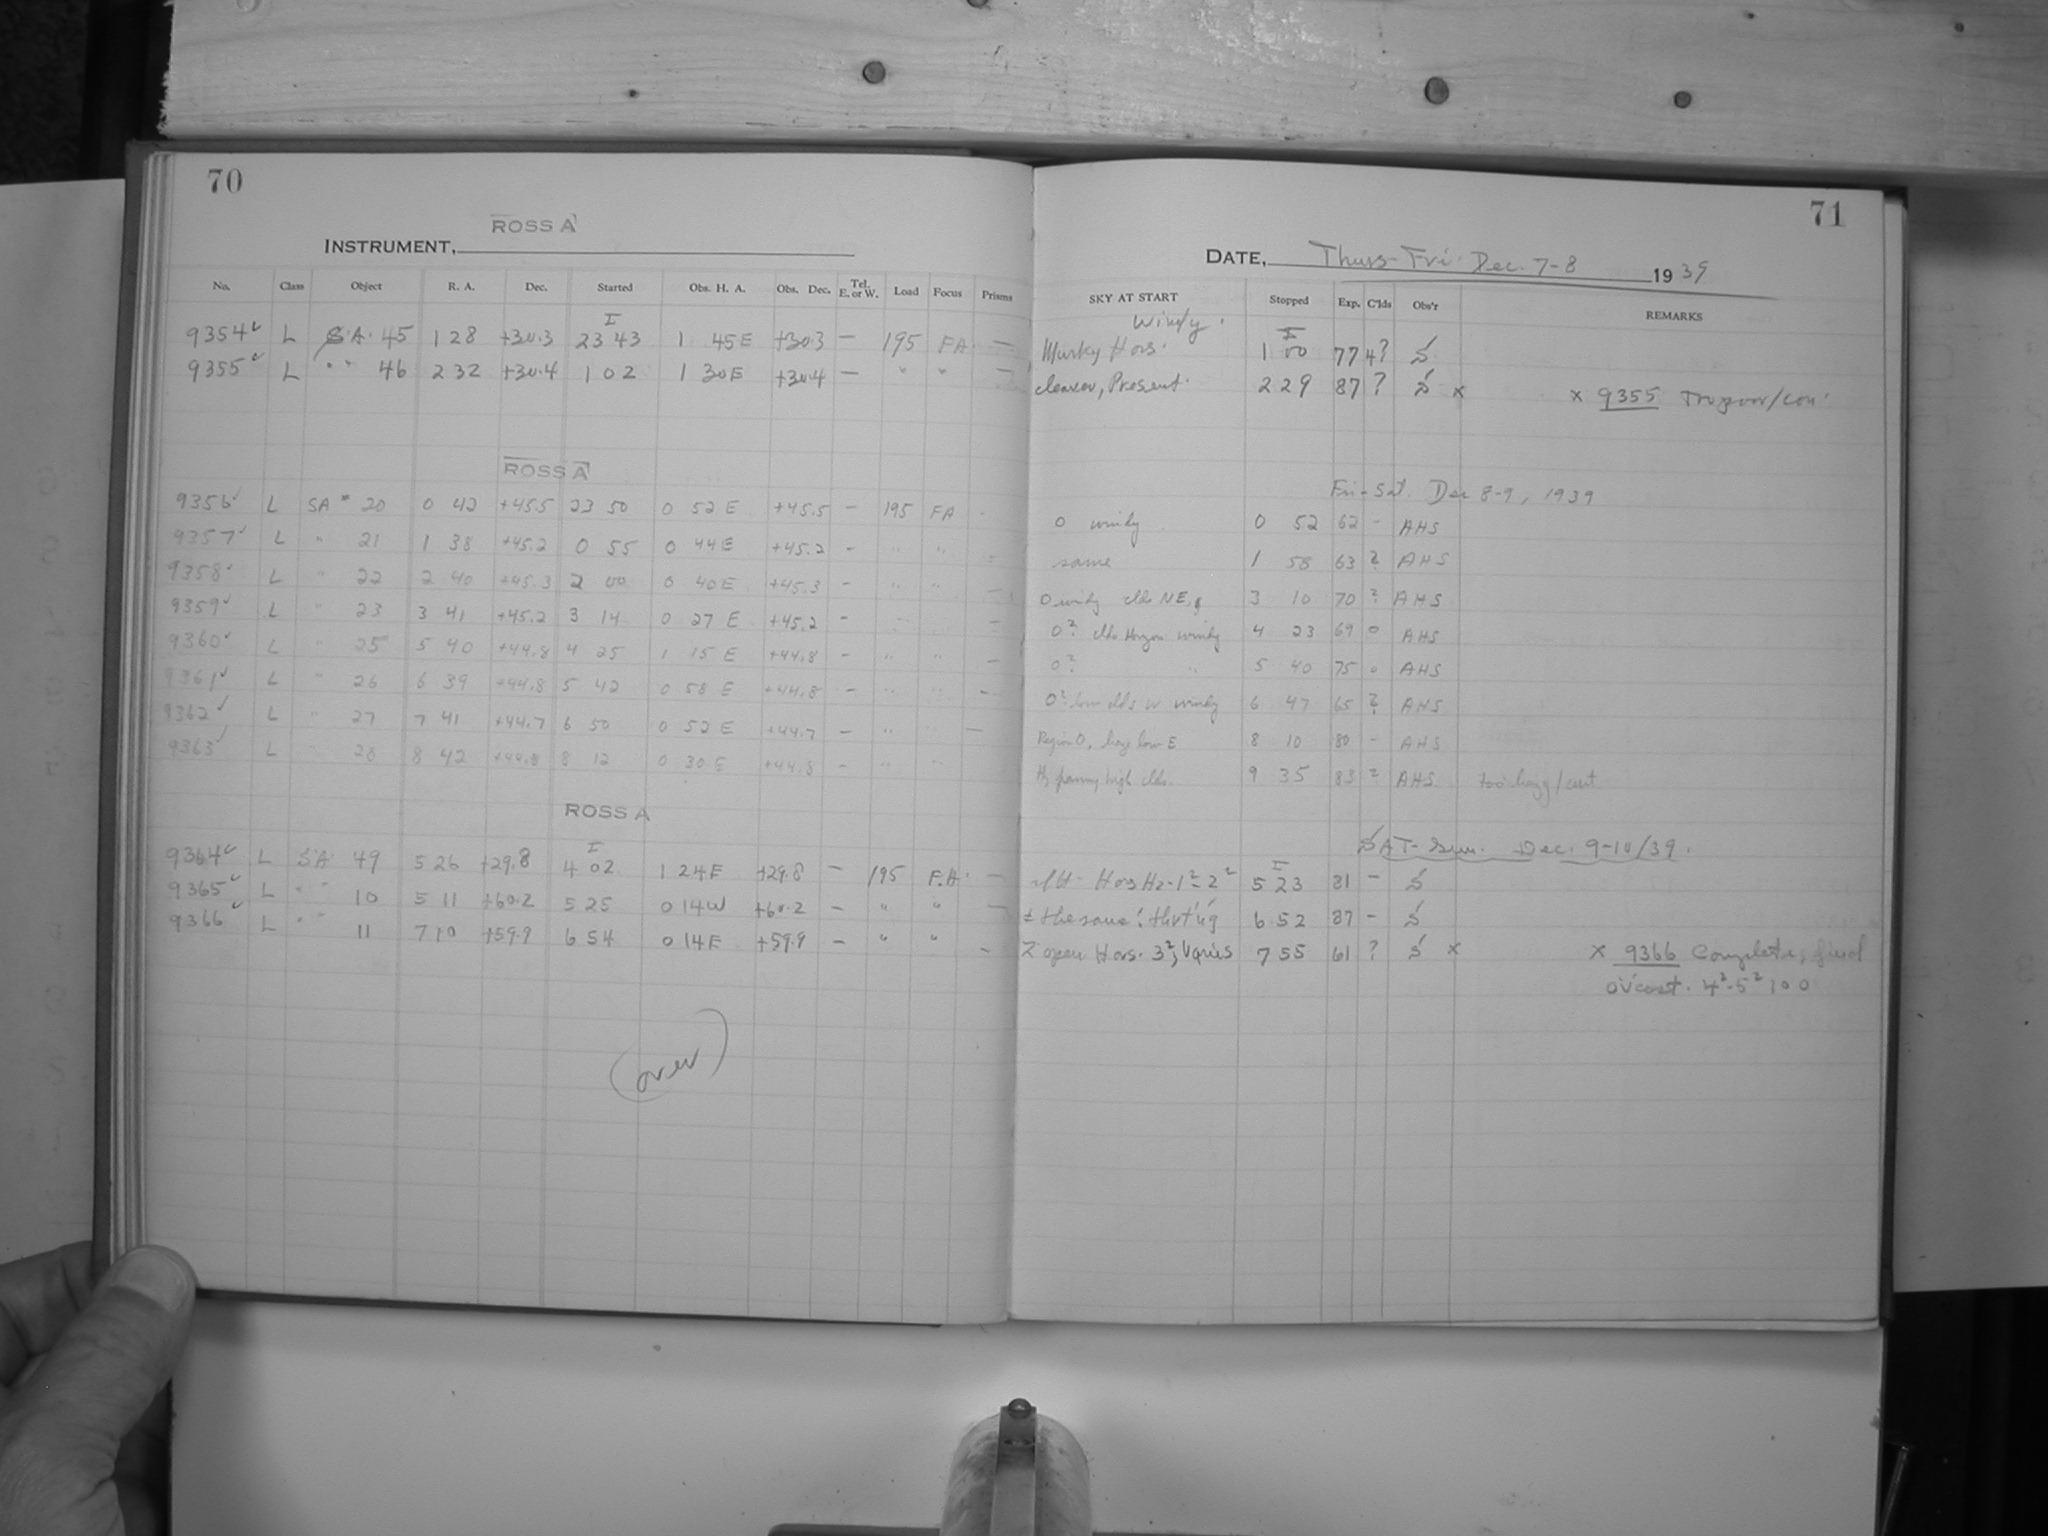 70
ROSS A
INSTRUMENT,
No. Class Object R. A. Dec. Started Obs. H. A. Obs. Dec. Tel. E. or W. Load Focus Prisms
9354 L S.A. 45 1 28 +30.3 23 43 1 45 E +30.3 — 195 FA —
9355 L " " 46 2 32 +30.4 1 02 1 30 E +30.4 — " " —
ROSS A
9356 L SA 20 0 42 +45.5 23 50 0 52 E +45.5 - 195 FA -
9357 L " 21 1 38 +45.2 0 55 0 44 E +45.2 - " " -
9358 L " 22 2 40 +45.3 2 00 0 40 E +45.3 - " " -
9359 L " 23 3 41 +45.2 3 14 0 27 E +45.2 - " " -
9360 L " 25 5 40 +44.8 4 25 1 15 E +44.8 - " " -
9361 L " 26 6 39 +44.8 5 42 0 58 E +44.8 - " " -
9362 L " 27 7 41 +44.7 6 50 0 52 E +44.7 - " " -
9363 L " 28 8 42 +44.8 8 12 0 30 E +44.8 - " "
ROSS A
9364 L SA 49 5 26 +29.8 4 02 1 24 E +29.8 — 195 F.A. —
9365 L " " 10 5 11 +60.2 5 25 0 14 W +60.2 - " " —
9366 L " " 11 7 10 +59.9 6 54 0 14 E +59.9 - " " -
(over)
71
DATE, Thurs-Fri. Dec. 7-8 1939
SKY AT START Stopped Exp. C'lds Obs'r REMARKS
Windy.
Murky Hors. 1 00 77 4? S
clearer, Present. 2 29 87 ? S x x 9355
Fri-Sat. Dec 8-9, 1939
0 windy 0 52 62 - AHS
same 1 58 63 ? AHS
0 windy clds NE, 3 10 70 ? AHS
0? clds Horizon windy 4 23 69 0 AHS
0? " 5 40 75 0 AHS
0? low clds W windy 6 47 65 ? AHS
Region 0, haze low E 8 10 80 - AHS
high clds. 9 35 83 ? AHS too hazy/cont
SAT-Sun. Dec. 9-10/39.
Hors Hz-1²-2² 5 23 81 - S
± the same; 6 52 87 - S
Z open Hors. 3², Varies 7 55 61 ? S x x 9366 Complete,
ov'cast. 4²-5² 100